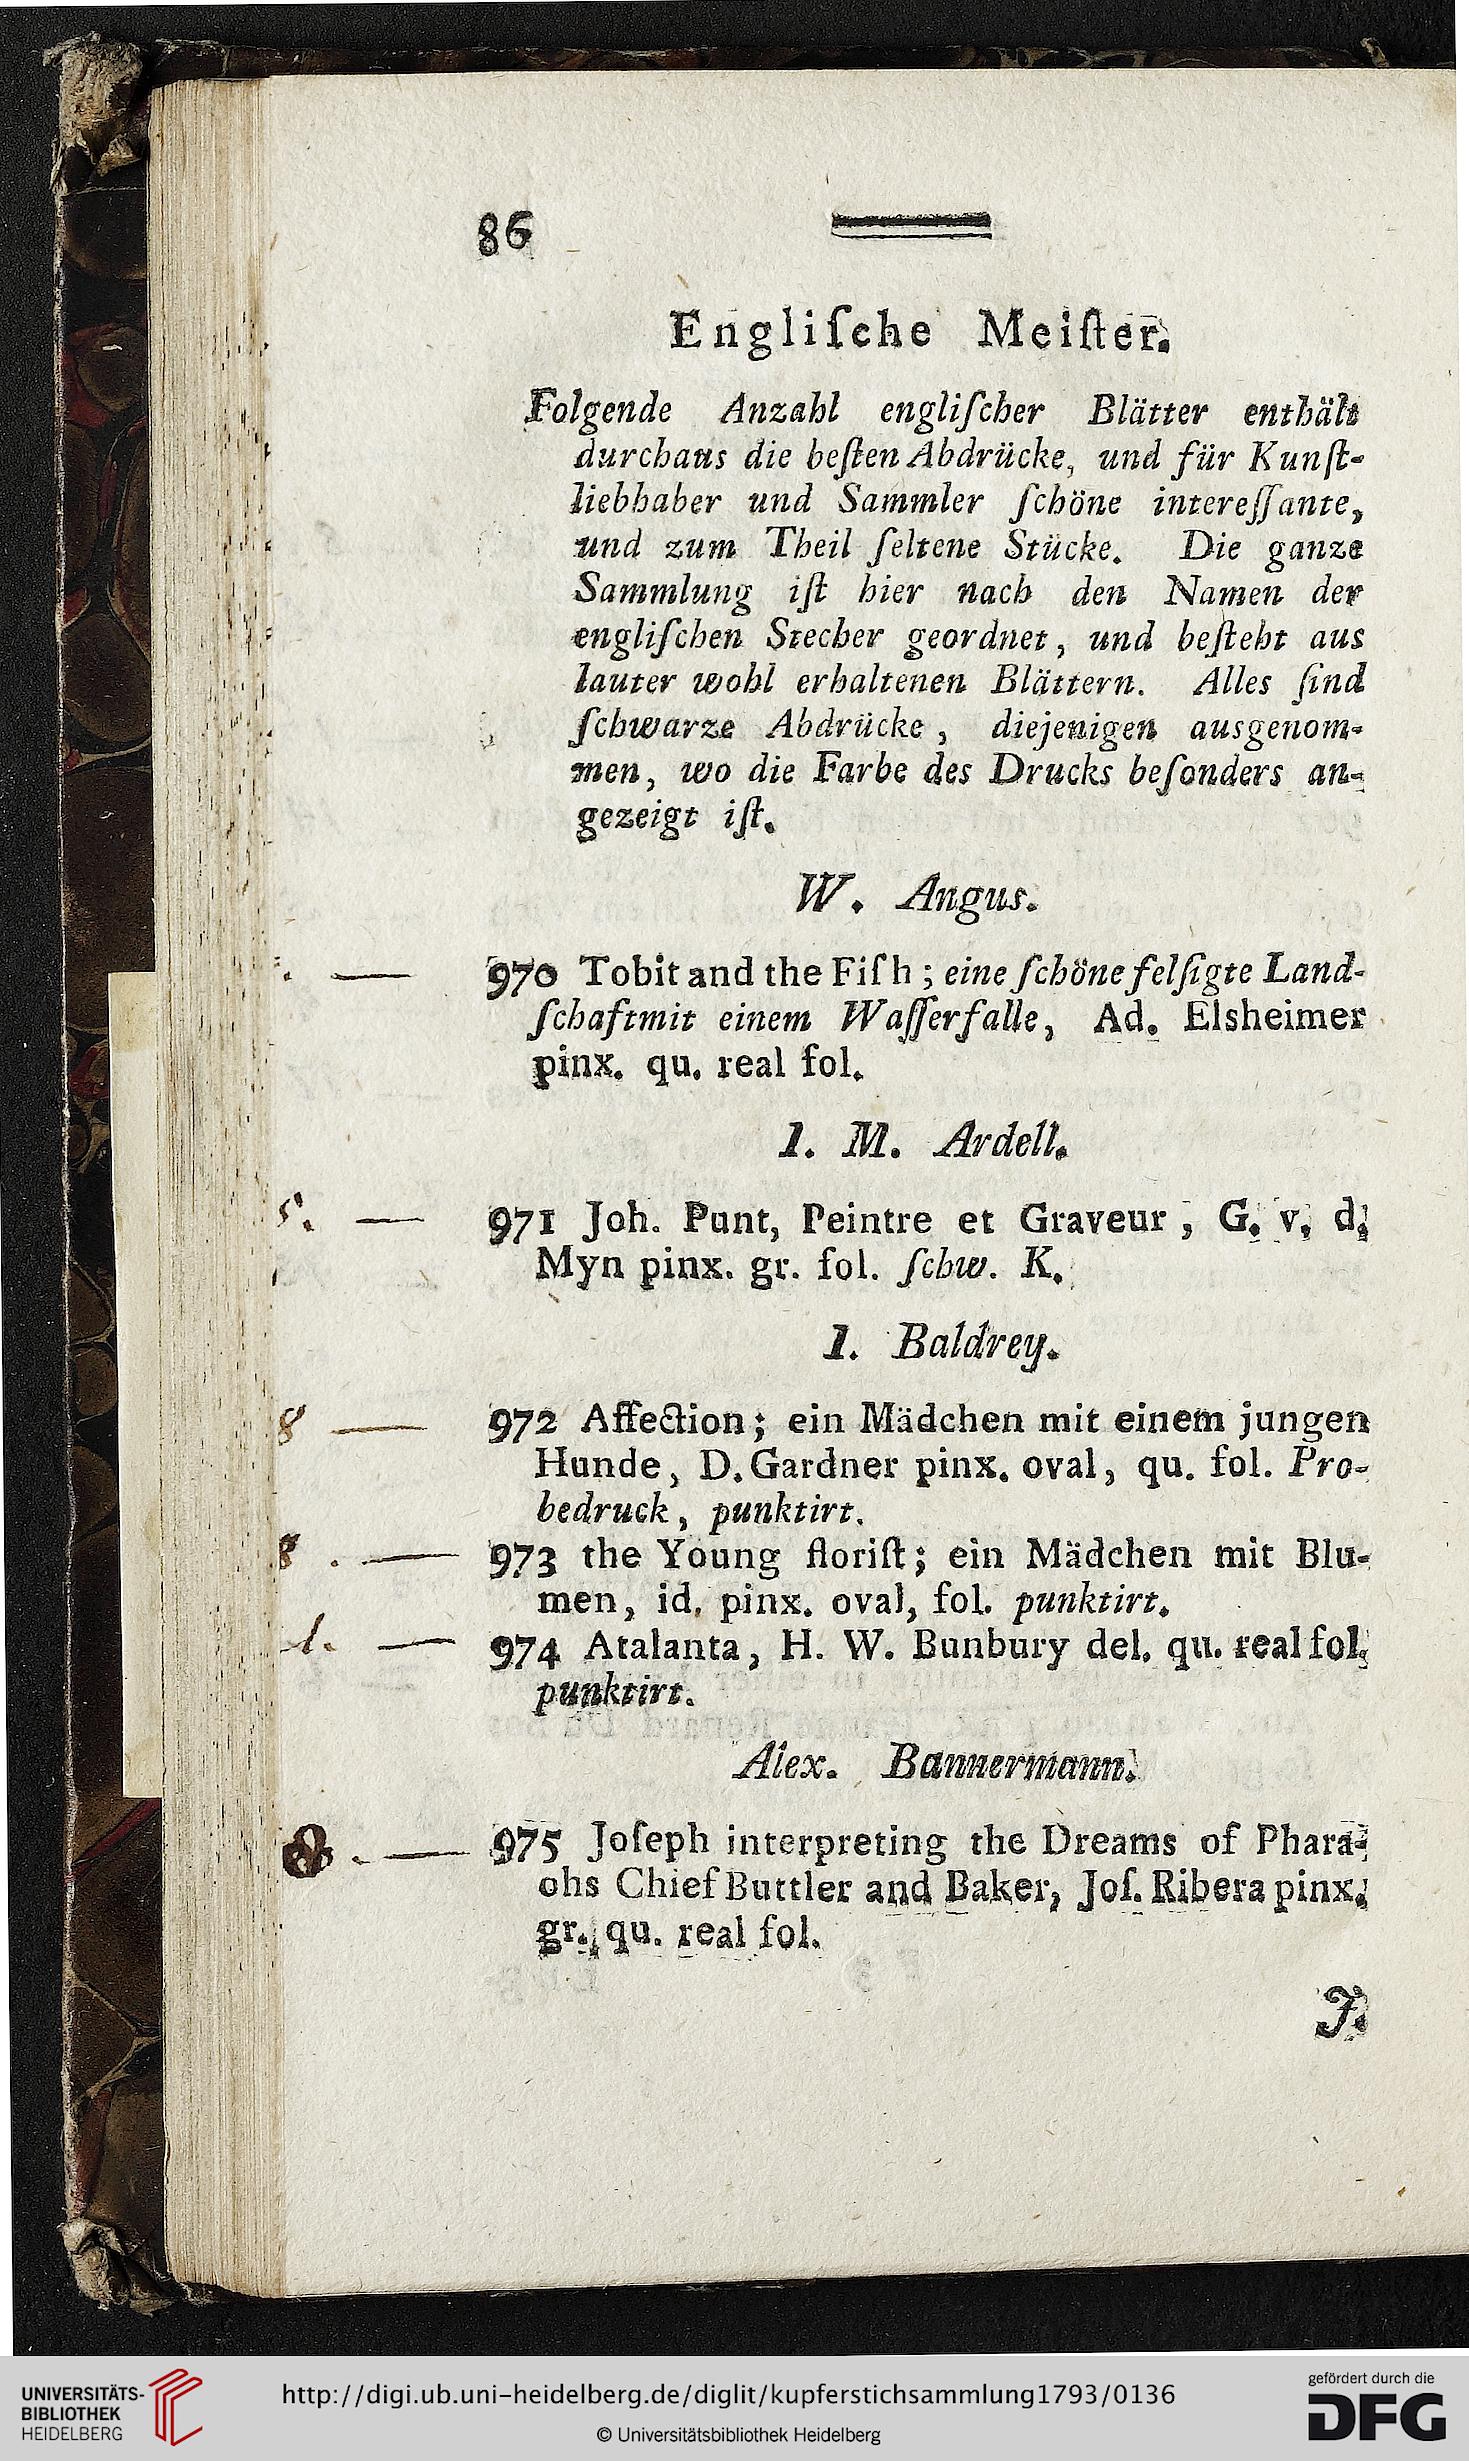 86
Engliſche Meiſter.
Folgende Anzahl engliſcher Blätter enthält
durchaus die beſten Abdrücke, und für Kunſt-
liebhaber und Sammler ſchöne intereſſante,
und zum Theil ſeltene Stücke. Die ganze
Sammlung iſt hier nach den Namen der
engliſchen Stecher geordnet, und beſteht aus
lauter wohl erhaltenen Blättern. Alles ſind
ſchwarze Abdrücke, diejenigen ausgenom-
men, wo die Farbe des Drucks beſonders an-
gezeigt iſt.
W. Angus.
— 970 Tobit and the Fiſh; eine ſchöne felſigte Land-
ſchaftmit einem Waſſerfalle, Ad. Elsheimer
pinx. qu. real fol.
I. M. Ardell.
5. — 971 Joh. Punt, Peintre et Graveur, G. v. d.
Myn pinx. gr. fol. ſchw. K.
I. Baldrey.
8 — 972 Affection; ein Mädchen mit einem jungen
Hunde, D. Gardner pinx. oval, qu. fol. Pro-
bedruck, punktirt.
8. — 973 the Young floriſt; ein Mädchen mit Blu-
men, id. pinx. oval, fol. punktirt.
1. — 974 Atalanta, H. W. Bunbury del. qu. real fol.
punktirt.
Alex. Bannermann.
— 975 Joſeph interpreting the Dreams of Phara-
ohs Chief Buttler and Baker, Joſ. Ribera pinx.
gr. qu. real fol.
J.
UNIVERSITÄTS-
BIBLIOTHEK
HEIDELBERG
http://digi.ub.uni-heidelberg.de/diglit/kupferstichsammlung1793/0136
© Universitätsbibliothek Heidelberg
gefördert durch die
DFG